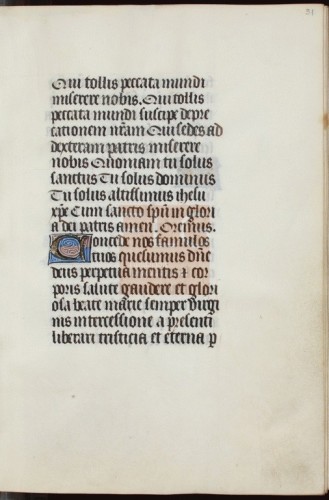 21
Qui tollis peccata mundi
miserere nobis. Qui tollis
peccata mundi suscipe depre
cationem nr̄am Qui sedes ad
dexteram patris miserere
nobis Quoniam tu solus
sanctus Tu solus dominus
Tu solus altissimus ihesu
xp̄e Cum sancto sp̄u in glori
a dei patris amen. Oremus.
Concede nos famulos
tuos quesumus dn̄e
deus perpetua mentis ⁊ cor
poris salute gaudere et glori
osa beate marie semper virgi
nis intercessione a p̄senti
liberari tristicia et eterna p